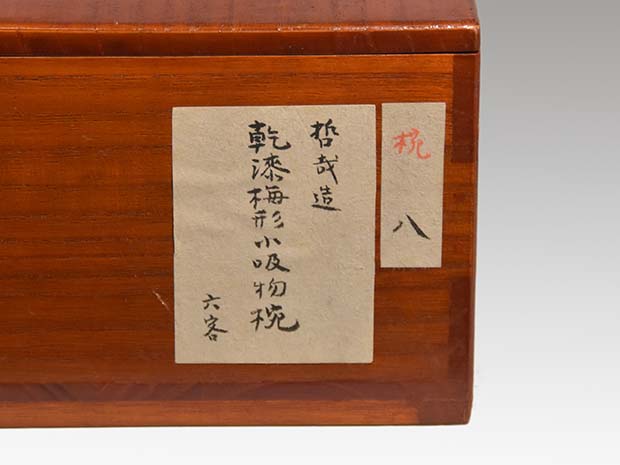 椀
八
哲哉造
乾漆梅形小吸物椀
六客